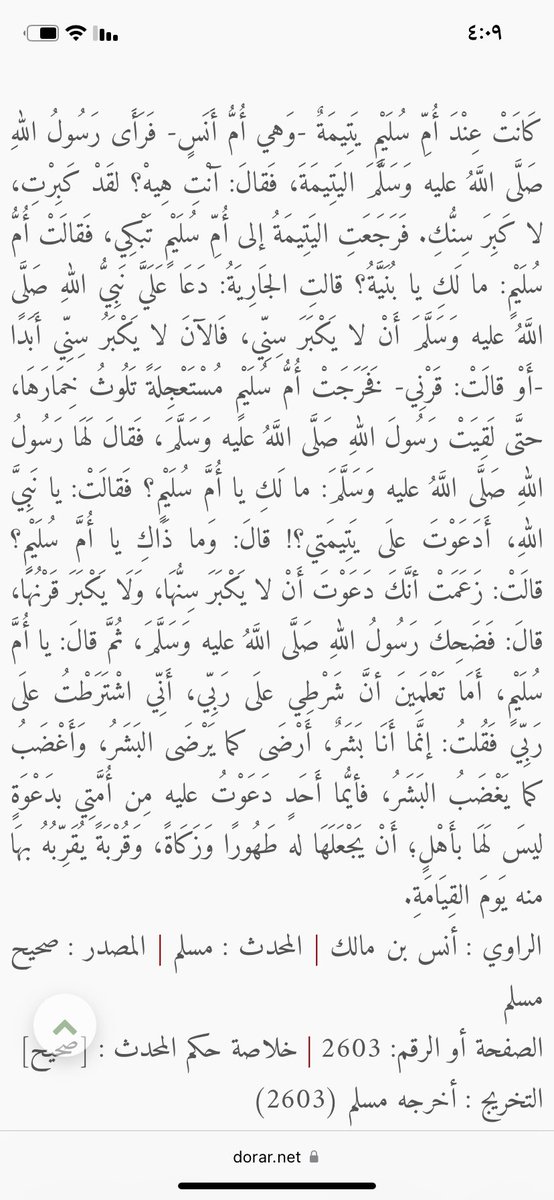 ٤:٠٩
كَانَتْ عِنْدَ أُمِّ سُلَيْمٍ يَتِيمَةٌ -وَهي أُمُّ أَنَسٍ- فَرَأَى رَسولُ اللهِ
صَلَّى اللَّهُ عليه وَسَلَّمَ اليَتِيمَةَ، فَقالَ: آنْتِ هِيهْ؟ لقَدْ كَبِرْتِ،
لا كَبِرَ سِنُّكِ. فَرَجَعَتِ اليَتِيمَةُ إلى أُمِّ سُلَيْمٍ تَبْكِي، فَقالَتْ أُمُّ
سُلَيْمٍ: ما لَكِ يا بُنَيَّةُ؟ قالتِ الجَارِيَةُ: دَعَا عَلَيَّ نَبِيُّ اللهِ صَلَّى
اللَّهُ عليه وَسَلَّمَ أَنْ لا يَكْبَرَ سِنِّي، فَالآنَ لا يَكْبَرُ سِنِّي أَبَدًا
-أَوْ قالَتْ: قَرْنِي- فَخَرَجَتْ أُمُّ سُلَيْمٍ مُسْتَعْجِلَةً تَلُوثُ خِمَارَهَا،
حتَّى لَقِيَتْ رَسولَ اللهِ صَلَّى اللَّهُ عليه وَسَلَّمَ، فقالَ لَهَا رَسولُ
اللهِ صَلَّى اللَّهُ عليه وَسَلَّمَ: ما لَكِ يا أُمَّ سُلَيْمٍ؟ فَقالَتْ: يا نَبِيَّ
اللهِ، أَدَعَوْتَ علَى يَتِيمَتِي؟! قالَ: وَما ذَاكِ يا أُمَّ سُلَيْمٍ؟
قالَتْ: زَعَمَتْ أنَّكَ دَعَوْتَ أَنْ لا يَكْبَرَ سِنُّهَا، وَلَا يَكْبَرَ قَرْنُهَا،
قالَ: فَضَحِكَ رَسولُ اللهِ صَلَّى اللَّهُ عليه وَسَلَّمَ، ثُمَّ قالَ: يا أُمَّ
سُلَيْمٍ، أَمَا تَعْلَمِينَ أنَّ شَرْطِي علَى رَبِّي، أَنِّي اشْتَرَطْتُ علَى
رَبِّي فَقُلتُ: إنَّما أَنَا بَشَرٌ، أَرْضَى كما يَرْضَى البَشَرُ، وَأَغْضَبُ
كما يَغْضَبُ البَشَرُ، فأيُّما أَحَدٍ دَعَوْتُ عليه مِن أُمَّتي بدَعْوَةٍ
ليسَ لَهَا بأَهْلٍ؛ أَنْ يَجْعَلَهَا له طَهُورًا وَزَكَاةً، وَقُرْبَةً يُقَرِّبُهُ بهَا
منه يَومَ القِيَامَةِ.
الراوي : أنس بن مالك | المحدث : مسلم | المصدر : صحيح
مسلم
الصفحة أو الرقم: 2603 | خلاصة حكم المحدث : [صحيح]
التخريج : أخرجه مسلم (2603)
dorar.net